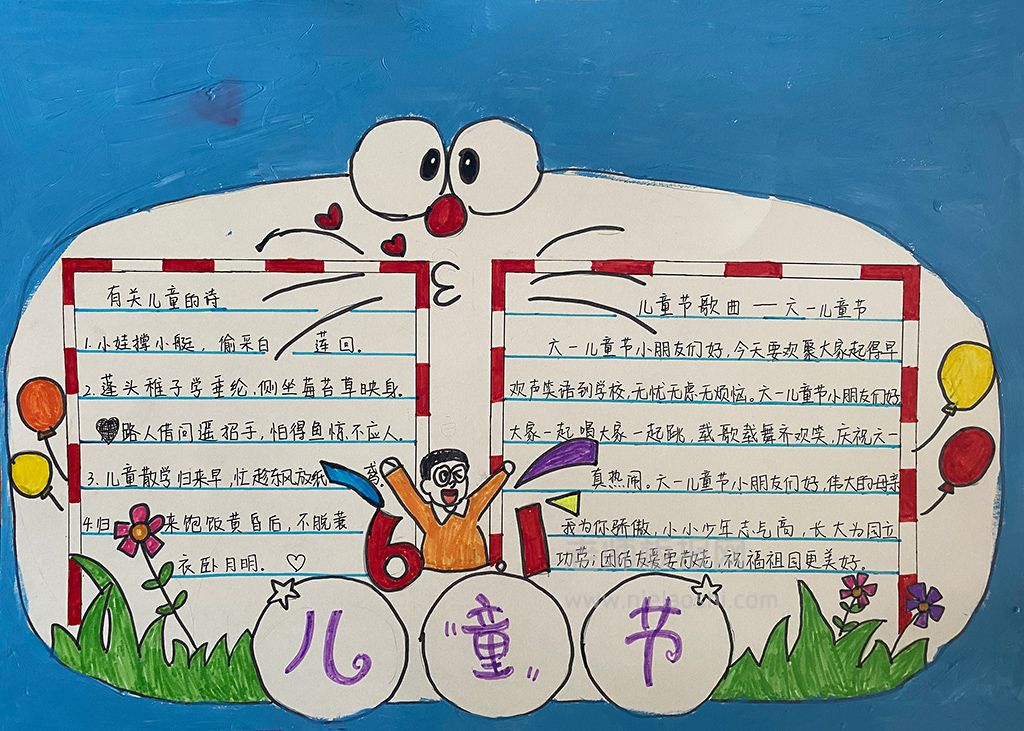 有关儿童的诗
1.小娃撑小艇，偷采白 莲回.
2.蓬头稚子学垂纶,侧坐莓苔草映身.
路人借问遥招手,怕得鱼惊不应人.
3.儿童散学归来早,忙趁东风放纸鸢.
4.归来饱饭黄昏后,不脱蓑
衣卧月明.
儿童节歌曲——六一儿童节
六一儿童节小朋友们好,今天要欢聚大家起得早
欢声笑语到学校,无忧无虑无烦恼。六一儿童节小朋友们好
大家一起唱大家一起跳,载歌载舞齐欢笑,庆祝六一
真热闹。六一儿童节小朋友们好,伟大的母亲
我为你骄傲,小小少年志气高,长大为国立
功劳;团结友爱 祝福祖国更美好.
6.1
儿"童"节